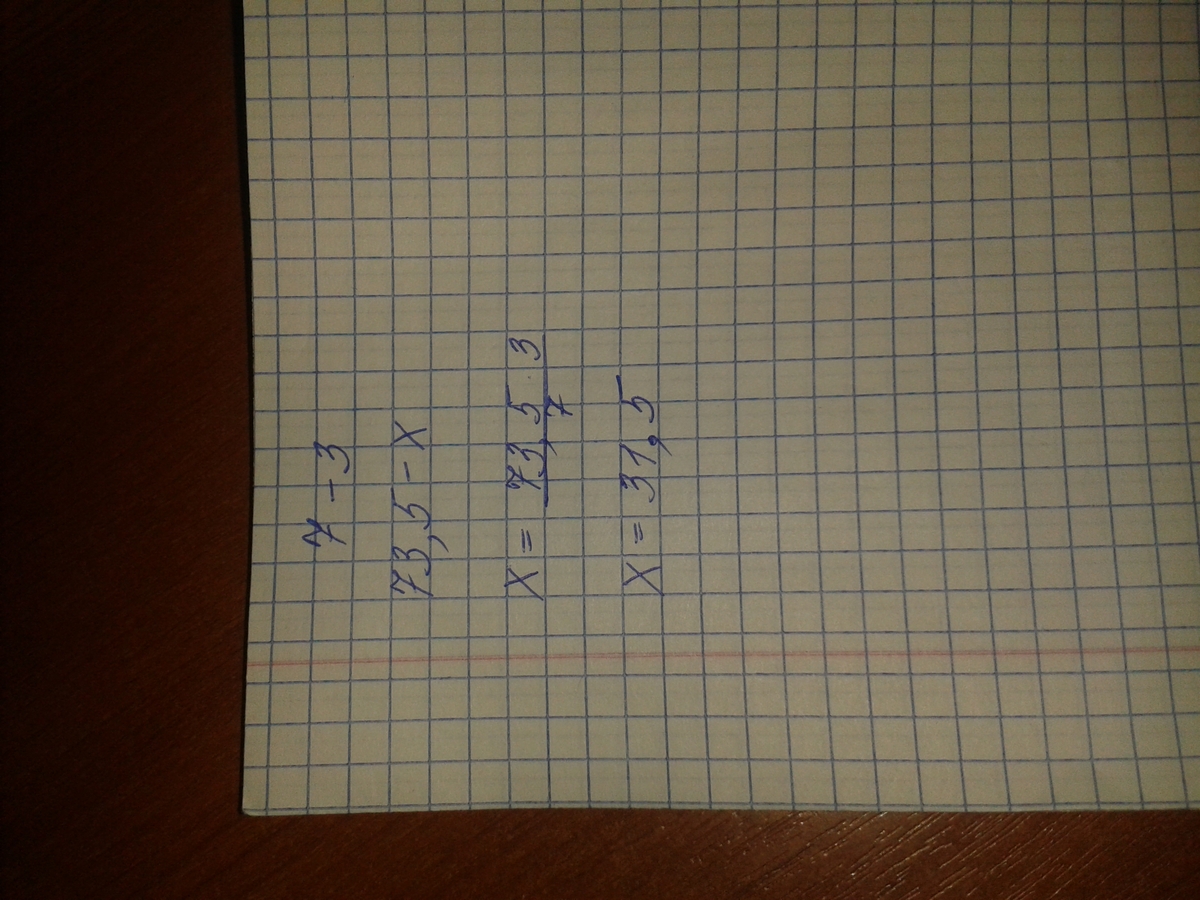 7 - 3
73,5 - X
X = 73,5 · 3
7
X = 31,5